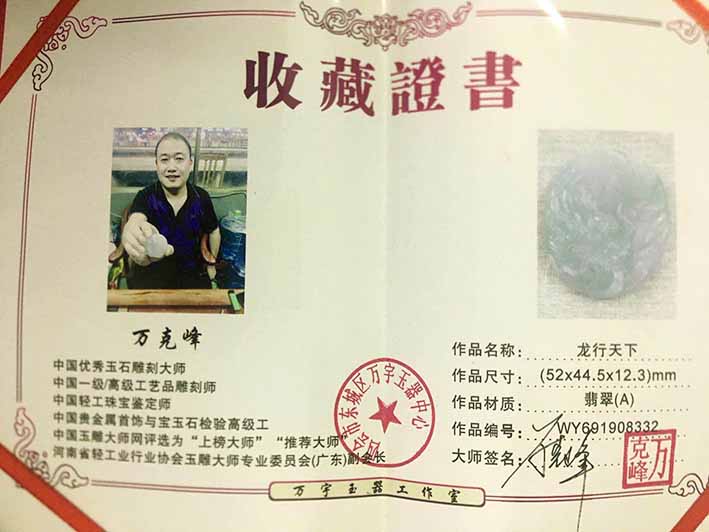 收藏證書
万克峰
中国优秀玉石雕刻大师
中国一级/高级工艺品雕刻师
中国轻工珠宝鉴定师
中国贵金属首饰与宝玉石检验高级工
中国玉雕大师网评选为“上榜大师”“推荐大师”
河南省轻工业行业协会玉雕大师专业委员会(广东)副会长
四会市东城区万宇玉器中心
作品名称: 龙行天下
作品尺寸: (52x44.5x12.3)mm
作品材质: 翡翠(A)
作品编号: WY691908332
大师签名: 万克峰
万克峰
万宇玉器工作室